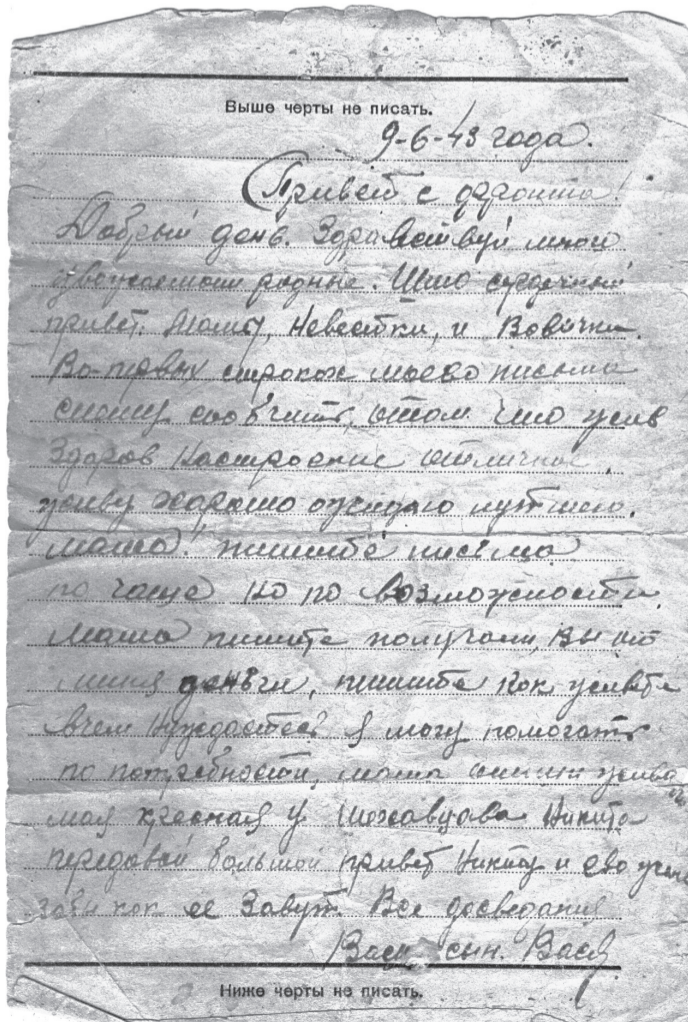 Выше черты не писать.
9-6-43 года.
Привет с фронта!
Добрый день. Здравствуй много
уважаемаи родные. Шлю сердечный
привет. Маму, Невестки, и Вовички.
Во-первых строках моево письма
спешу сообчить, отом что жив
Здоров Настроение отличное,
живу хорошо ожидаю лутшево.
мама! пишите письма
по чаще но по возможности.
Мама пишите получали, Вы от
миня деньги, пишите как живете
вчем Нуждаетесь я могу помогать
по потребности, мама
моя кресная у Никита
передовай большой привет Никиту и ево
как ее Завут. Все досведания
Ваш сын. Вася
Ниже черты не писать.